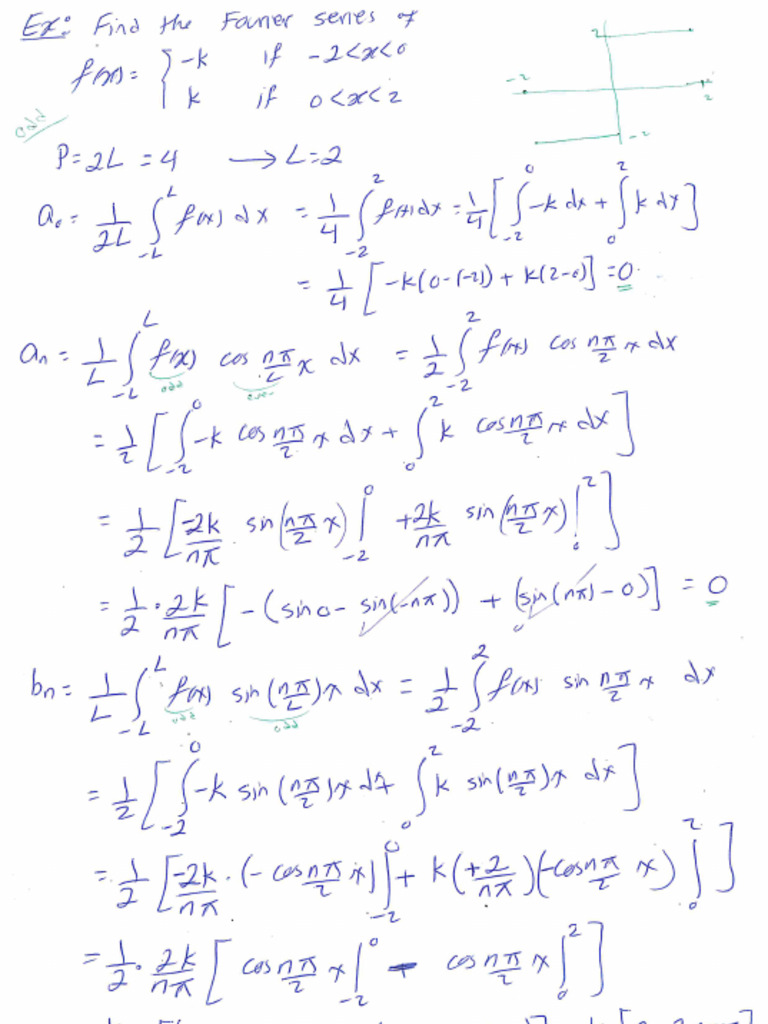 Ex: Find the Fourier series of
f(x) = { -k if -2<x<0
k if 0<x<2
odd
2
-2 2
-2
P=2L=4 → L=2
a₀ = 1/2L ∫_{-L}^{L} f(x) dx = 1/4 ∫_{-2}^{2} f(x) dx = 1/4 [ ∫_{-2}^{0} -k dx + ∫_{0}^{2} k dx ]
= 1/4 [ -k(0-(-2)) + k(2-0) ] = 0
aₙ = 1/L ∫_{-L}^{L} f(x) cos nπ/L x dx = 1/2 ∫_{-2}^{2} f(x) cos nπ/2 x dx
odd even
= 1/2 [ ∫_{-2}^{0} -k cos nπ/2 x dx + ∫_{0}^{2} k cos nπ/2 x dx ]
= 1/2 [ -2k/nπ sin(nπ/2 x) |_{-2}^{0} + 2k/nπ sin(nπ/2 x) |_{0}^{2} ]
= 1/2 · 2k/nπ [ -(sin0 - sin(-nπ)) + (sin(nπ) - 0) ] = 0
bₙ = 1/L ∫_{-L}^{L} f(x) sin(nπ/L)x dx = 1/2 ∫_{-2}^{2} f(x) sin nπ/2 x dx
odd odd
= 1/2 [ ∫_{-2}^{0} -k sin(nπ/2)x dx + ∫_{0}^{2} k sin(nπ/2)x dx ]
= 1/2 [ -2k/nπ · (-cos nπ/2 x) ]_{-2}^{0} + k(+2/nπ)(-cos nπ/2 x) ]_{0}^{2} ]
= 1/2 · 2k/nπ [ cos nπ/2 x |_{-2}^{0} - cos nπ/2 x |_{0}^{2} ]